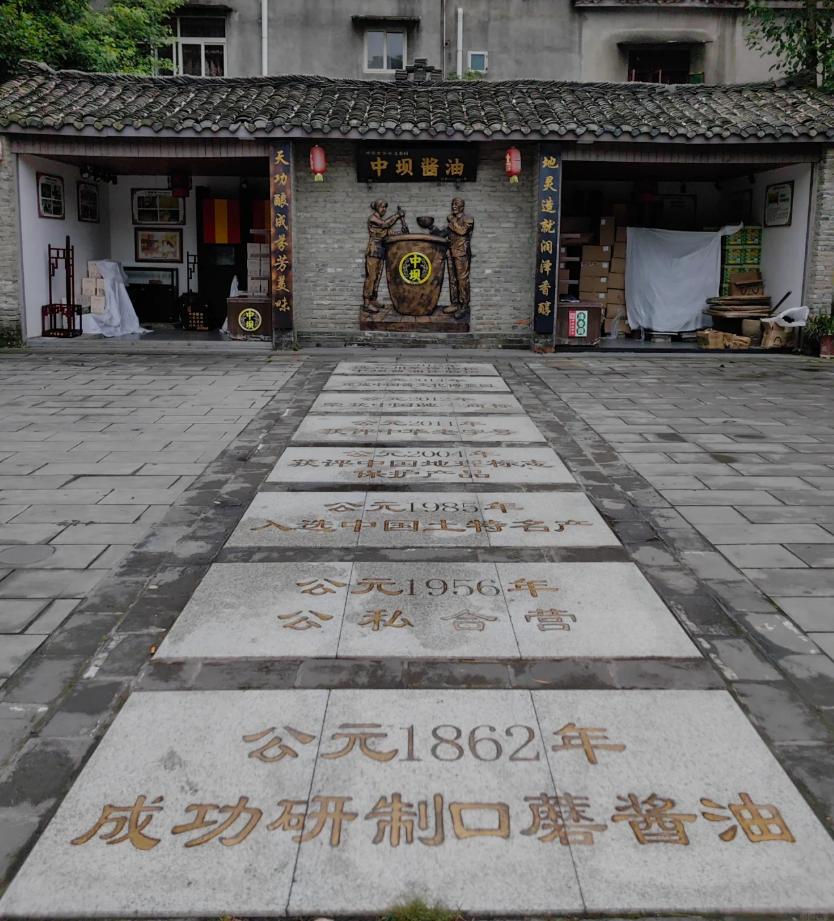 中坝酱油
天功酿成香芳美味
地灵造就润泽香醇
中坝
中坝
公元2012年
公元2011年
获评中华老字号
公元2004年
获评中国地理标志
保护产品
公元1985年
入选中国土特名产
公元1956年
公私合营
公元1862年
成功研制口蘑酱油